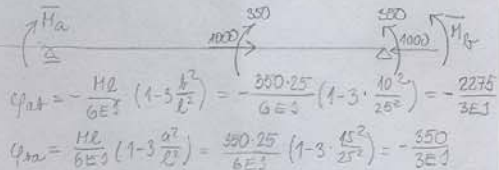 M̅a 350 350 M̅b
1000 1000
φab = - Ml/6EJ (1-3 b²/l²) = - 350·25/6EJ (1-3· 10²/25²) = - 2275/3EJ
φba = Ml/6EJ (1-3 a²/l²) = 350·25/6EJ (1-3· 15²/25²) = - 350/3EJ